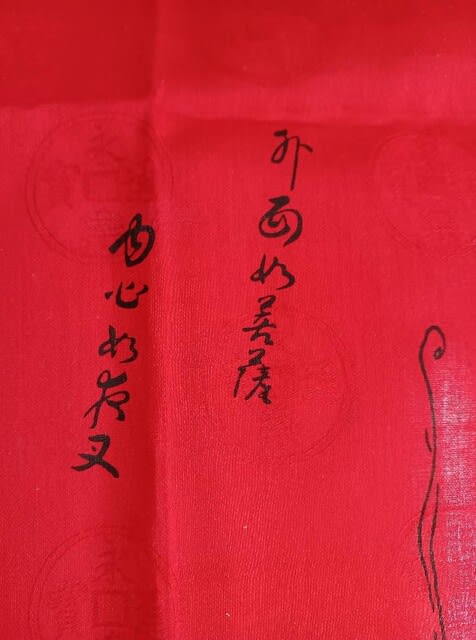 外面如菩薩
内心如夜叉